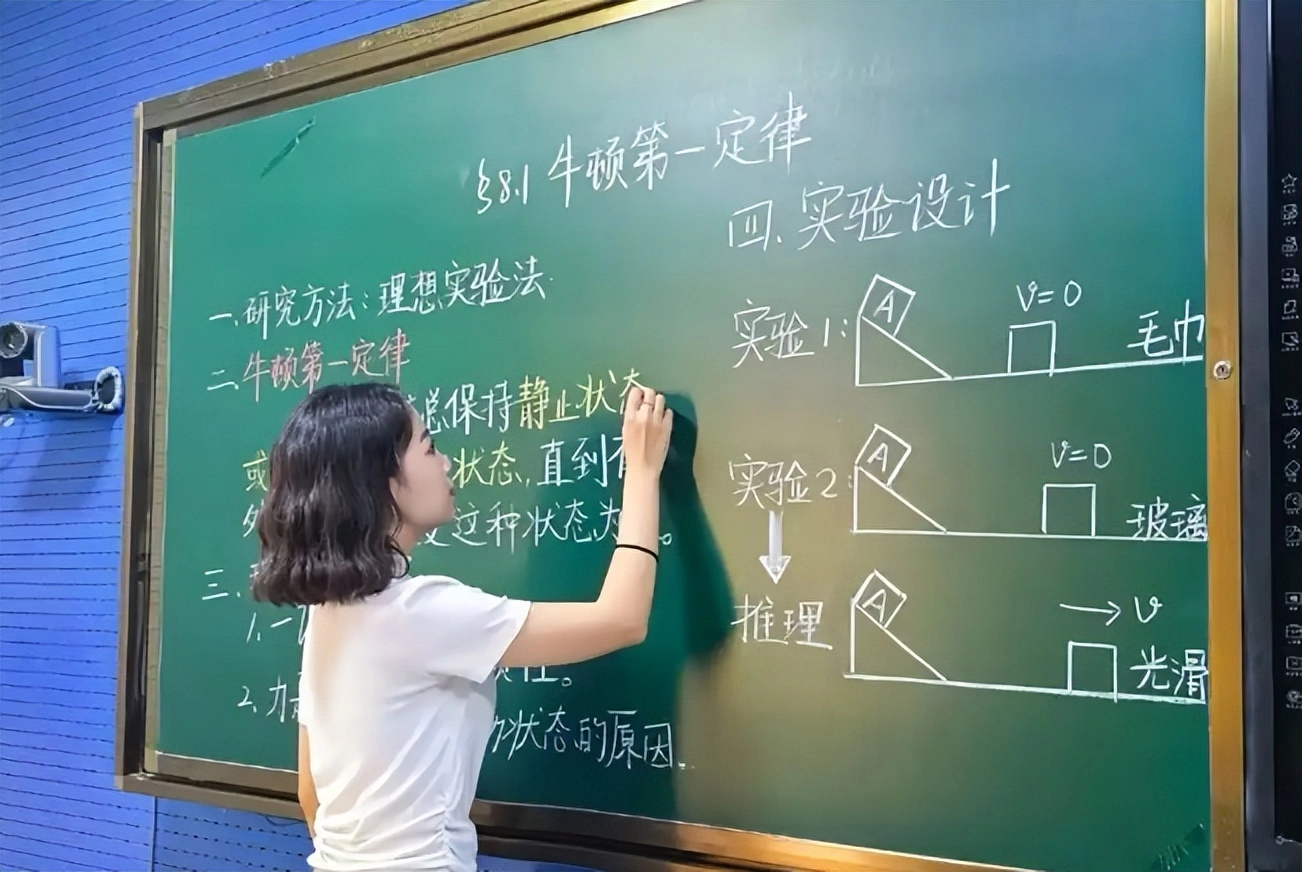 §8.1 牛顿第一定律
一、研究方法：理想实验法.
二、牛顿第一定律
总保持静止状态
或 状态,直到有
外 这种状态为 。
三、
1.一
2.力 性。
状态的原因.
四、实验设计
实验1:
A
v=0
毛巾
实验2:
A
v=0
玻璃
推理
A
v
光滑